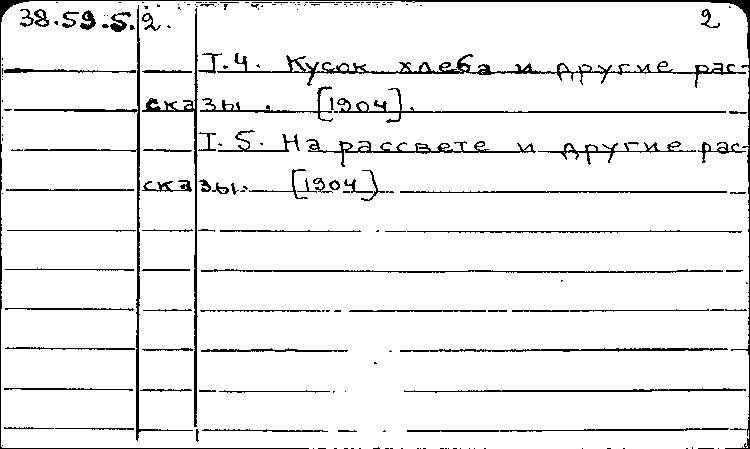 38.59.5.2. 2
Т.4. Кусок хлеба и другие рас-
сказы. [1904].
Т.5. На рассвете и другие рас-
сказы. [1904]